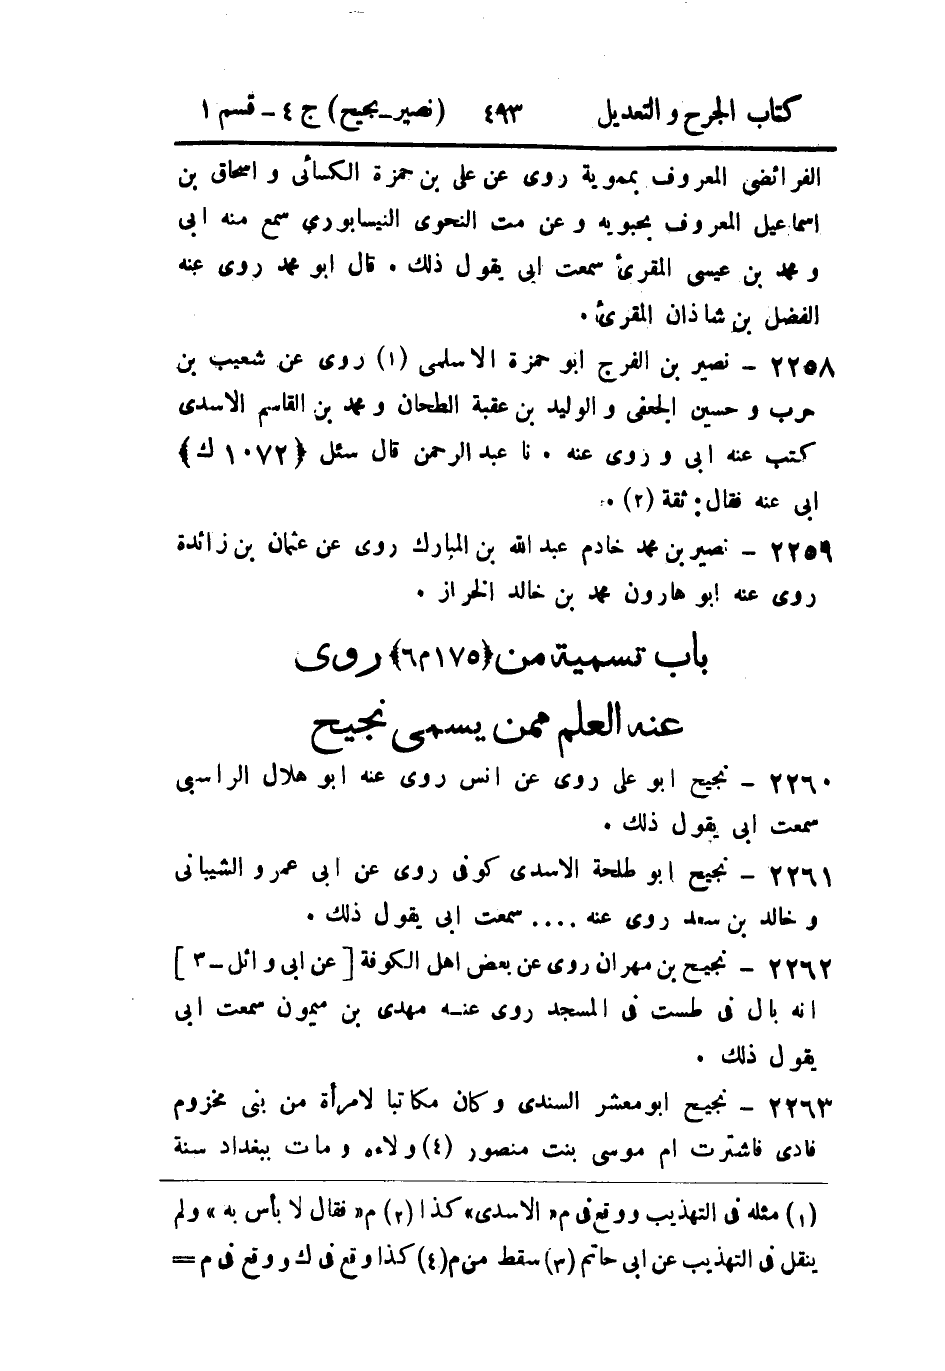 كتاب الجرح و التعديل ٤٩٣ (نصير-نجيح) ج ٤ - قسم ١
الفرائضى المعروف بمموية روى عن على بن حمزة الكسائى و اسحاق بن
اسماعيل المعروف بحبويه و عن مت النحوى النيسابوري سمع منه ابى
و محمد بن عيسى المقرئ سمعت ابى يقول ذلك . قال ابو محمد روى عنه
الفضل بن شاذان المقرئ .
٢٢٥٨ - نصير بن الفرج ابو حمزة الاسلمى (١) روى عن شعيب بن
حرب و حسين الجعفى و الوليد بن عقبة الطحان و محمد بن القاسم الاسدى
كتب عنه ابى و روى عنه . نا عبد الرحمن قال سئل ﴿١٠٧٢ ك﴾
ابى عنه فقال: ثقة (٢) .
٢٢٥٩ - نصير بن محمد خادم عبد الله بن المبارك روى عن عثمان بن زائدة
روى عنه ابو هارون محمد بن خالد الخراز .
باب تسمية من ﴿١٧٥ م ٦﴾ روى
عنه العلم ممن يسمى نجيح
٢٢٦٠ - نجيح ابو على روى عن انس روى عنه ابو هلال الراسبى
سمعت ابى يقول ذلك .
٢٢٦١ - نجيح ابو طلحة الاسدى كوفى روى عن ابى عمرو الشيبانى
و خالد بن سعد روى عنه .... سمعت ابى يقول ذلك .
٢٢٦٢ - نجيح بن مهران روى عن بعض اهل الكوفة [عن ابى وائل - ٣]
انه بال فى طست فى المسجد روى عنه مهدى بن ميمون سمعت ابى
يقول ذلك .
٢٢٦٣ - نجيح ابو معشر السندى وكان مكاتبا لامرأة من بنى مخزوم
فادى فاشترت ام موسى بنت منصور (٤) ولاءه و مات ببغداد سنة
(١) مثله فى التهذيب ووقع فى م «الاسدى» كذا (٢) م «فقال لا بأس به» ولم
ينقل فى التهذيب عن ابى حاتم (٣) سقط من م (٤) كذا وقع فى ك ووقع فى م =